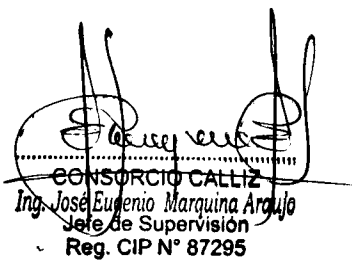 CONSORCIO CALLIZ
Ing. José Eugenio Marquina Araujo
Jefe de Supervisión
Reg. CIP N° 87295